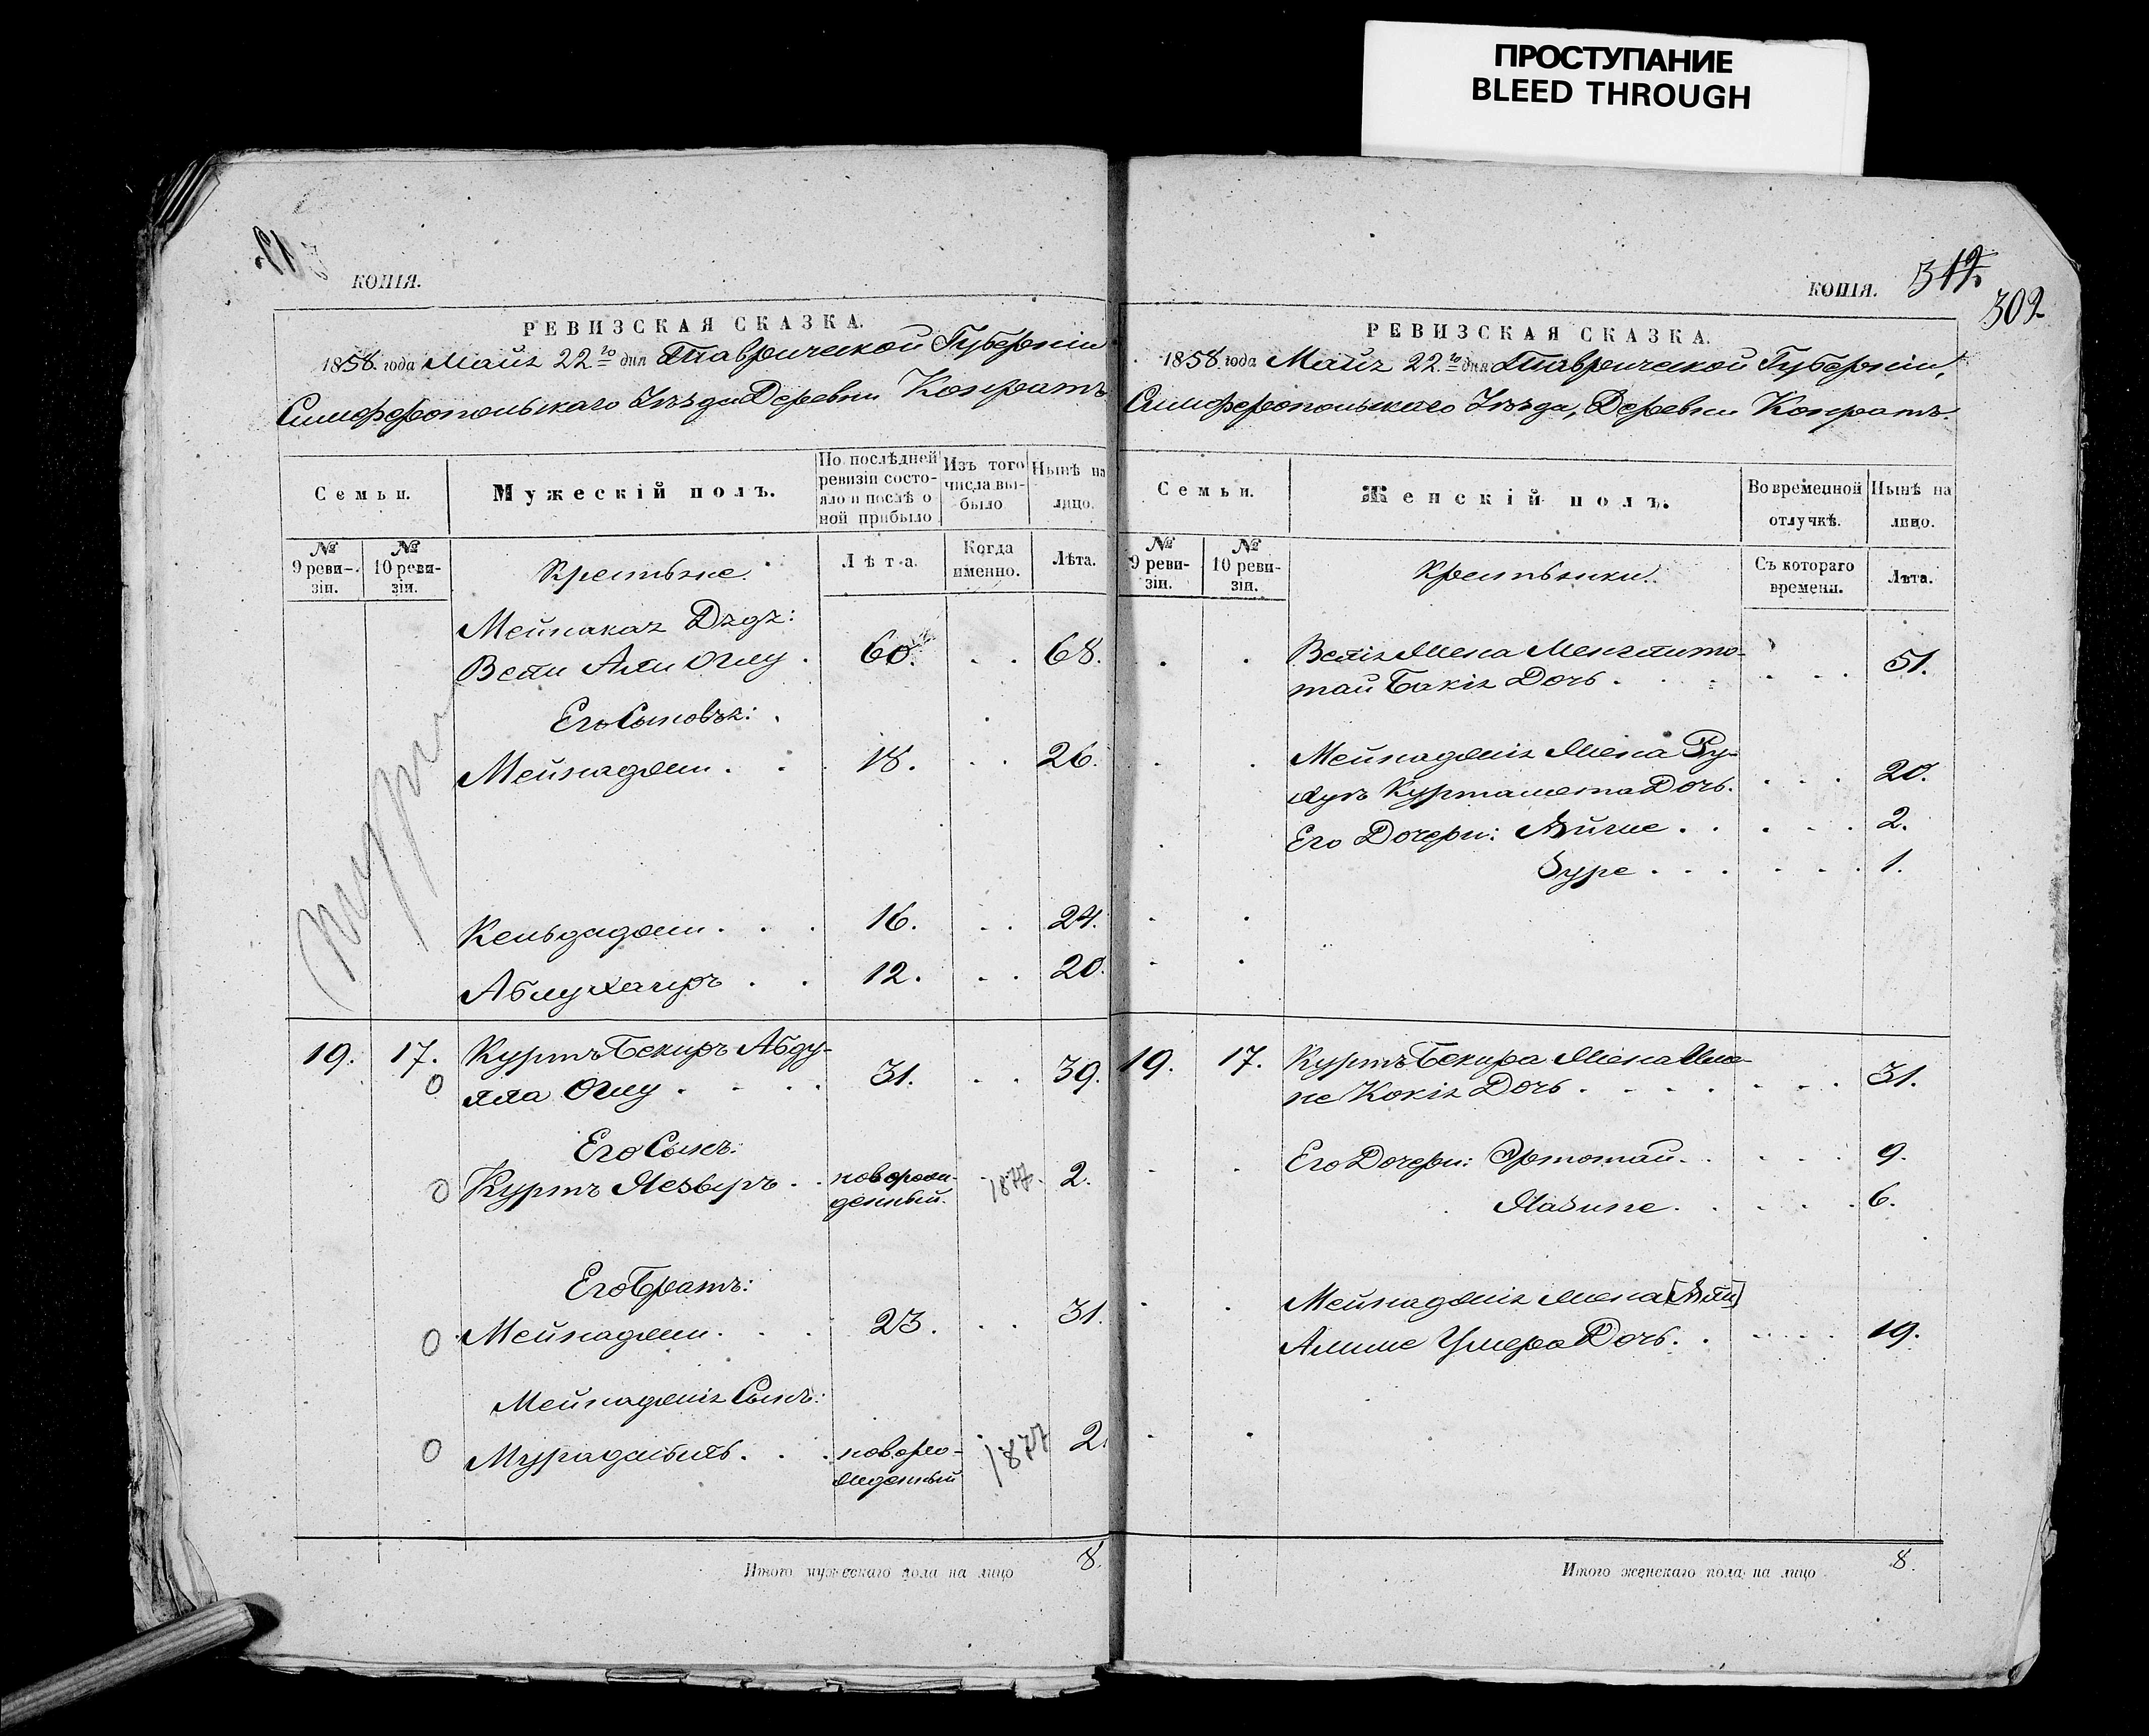 ПРОСТУПАНИЕ
BLEED THROUGH
КОПІЯ.
РЕВИЗСКАЯ СКАЗКА.
1858. года Маія 22го дня Таврической Губерніи
Симферопольскаго Уѣзда Деревни Конратъ
Семьи.
Мужескій полъ.
По послѣдней ревизіи состояло и послѣ оной прибыло
Изъ того числа выбыло
Нынѣ на лицо.
№ 9 ревизіи.
№ 10 ревизіи.
Крестьяне.
Лѣта.
Когда именно.
Лѣта.
Дядя:
Вели Али Оглу . 60. . . 68.
Его Сыновья:
Мейнаджи . . 18. . . 26.
Кельдаджи . . . 16. . . 24.
12. . . 20.
19. 17. Куртъ Бекиръ Абду-
лла Оглу . . . . 31. . . 39.
Его Сынъ:
Куртъ . . новорож-
денный. 1877. 2.
Его Братъ:
Мейнаджи . . . 23. . . 31.
Мейнаджія Сынъ:
. . . новоро-
жденный 1877 2.
Итого мужескаго пола на лицо 8.
КОПІЯ.
319.
309.
РЕВИЗСКАЯ СКАЗКА.
1858. года Маія 22.го дня Таврической Губерніи,
Симферопольскаго Уѣзда, Деревни Конратъ.
Семьи.
Женскій полъ.
Во временной отлучкѣ.
Нынѣ на лицо.
№ 9 ревизіи.
№ 10 ревизіи.
Крестьянки.
Съ котораго времени.
Лѣта.
Велія Жена
Дочь . 51.
Мейнаджія Жена
Куртамета Дочь. 20.
Его Дочери: Айше . 2.
Зуре . . . 1.
19. 17. Куртъ Бекира Жена
Дочь . 31.
Его Дочери: 9.
6.
Мейнаджія Жена
Умера Дочь . 19.
Итого женскаго пола на лицо 8.